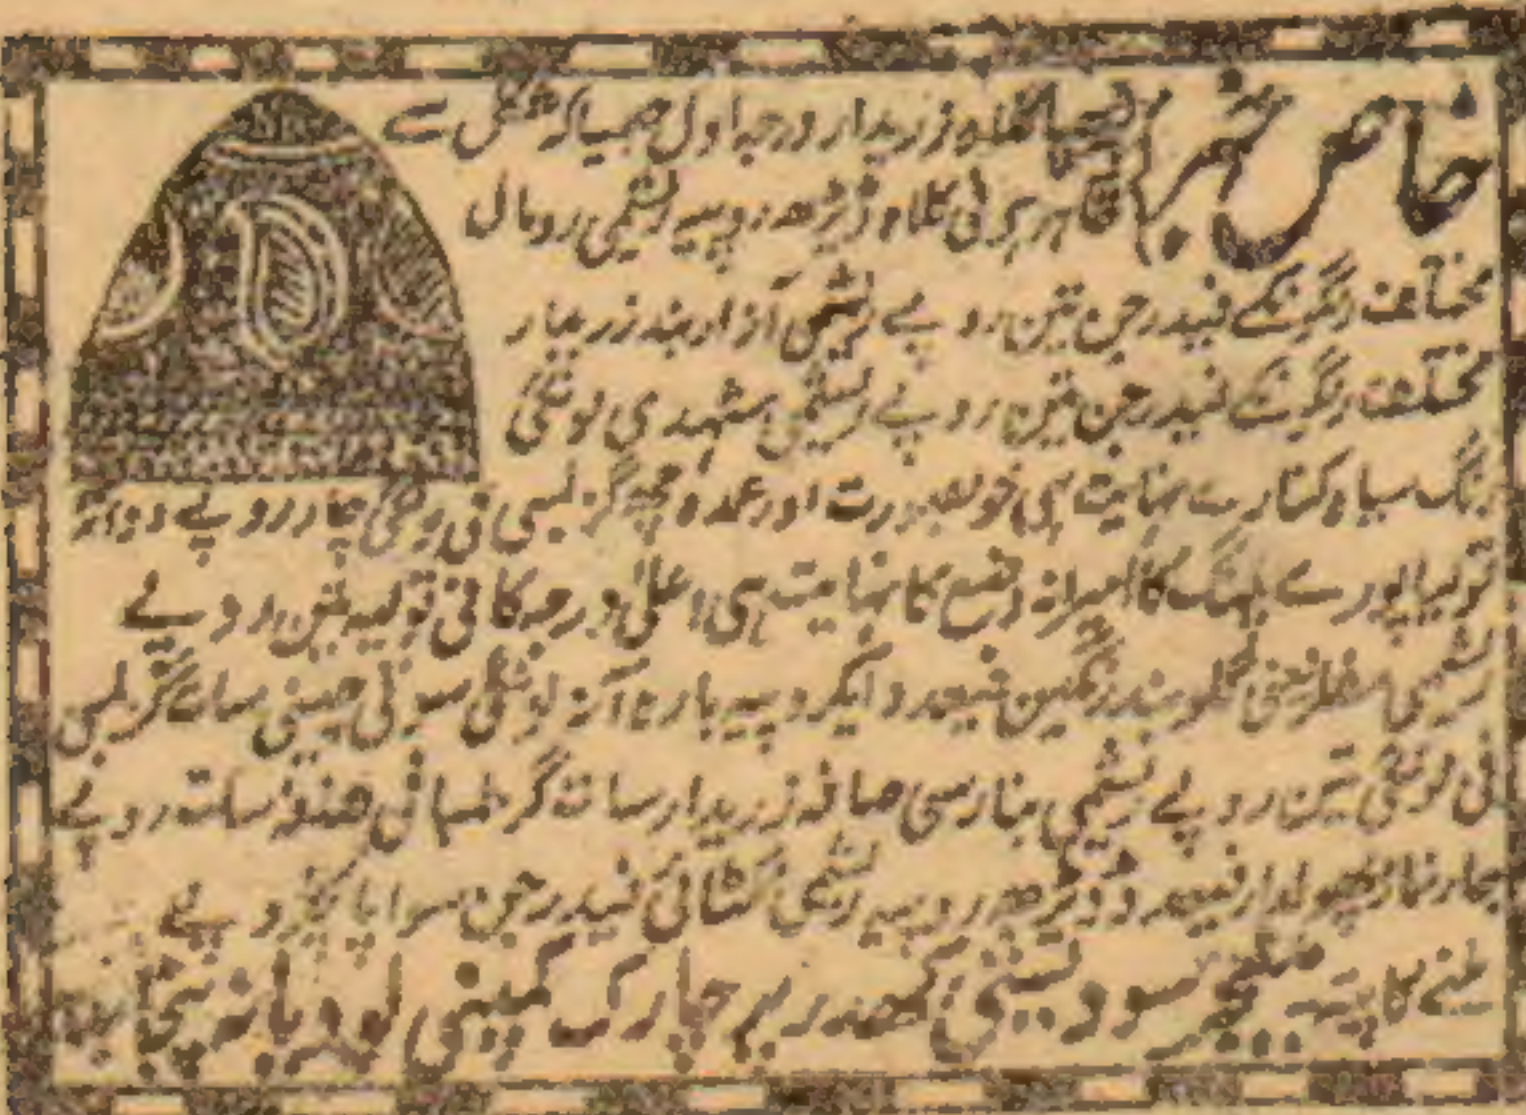 خاص نمبر
کلاہ زریدار درجہ اول جیسا کہ شکل سے
ظاہر ہی فی کلاہ ڈیڑھ روپیہ ریشمی رومال
مختلف رنگونکے فیدرجن تین روپے ریشمی آزاربند زردار
مختلف رنگونکے فیدرجن تین روپے ریشمی مشہدی لونگی
رنگ سیاہ کنارے نہایت ہی خوبصورت اور عمدہ چھ گز لمبی فی لونگی چار روپے دوآنہ
تولیہ پورے پلنگ کا امیرانہ وضع کا نہایت ہی اعلیٰ درجہ کا فی تولیہ تین روپے
ریشمی مفلر یعنی گلوبند رنگین فیعدد ایکروپیہ بارہ آنہ لونگی سوتی چینی سات گز لمبی
فی لونگی تین روپے ریشمی بنارسی صافہ زریدار سات گز لمبا فی صافہ سات روپے
جاءنماز پھولدار فیعدد ڈیڑھ روپیہ ریشمی نکٹائی فیدرجن سوا پانچ روپے
ملنے کا پتہ۔ منیجر سودیشی کھدر پرچارک کمپنی لودہانہ پنجاب